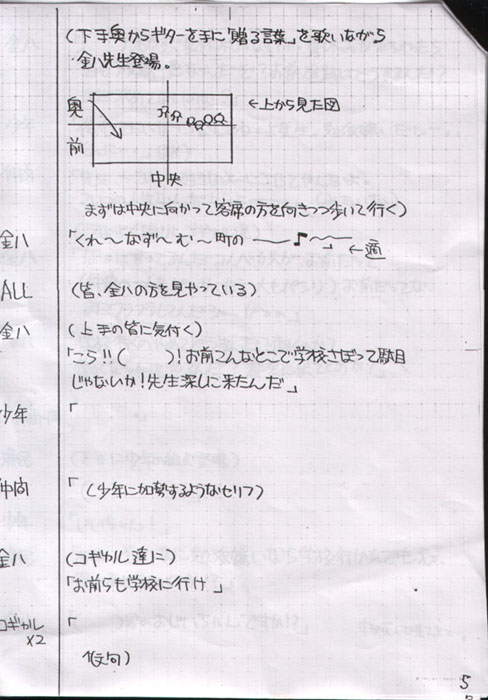 (下手奥からギターを手に「贈る言葉」を歌いながら
金八先生登場。
奥
前
←上から見た図
中央
まずは中央に向かって客席の方を向きつつ歩いて行く)
金八 「くれ〜なず〜む〜町の 〜♪〜 ←適
ALL (皆、金八の方を見やっている)
金八 (上手の皆に気付く)
「こら!!(　　)!お前こんなとこで学校さぼって駄目
じゃないか!先生探しに来たんだ」
少年 「
仲間 「(少年に加勢するようなセリフ)
金八 (コギャル達に)
「お前らも学校に行け」
コギャル×2 「
(文句)
5